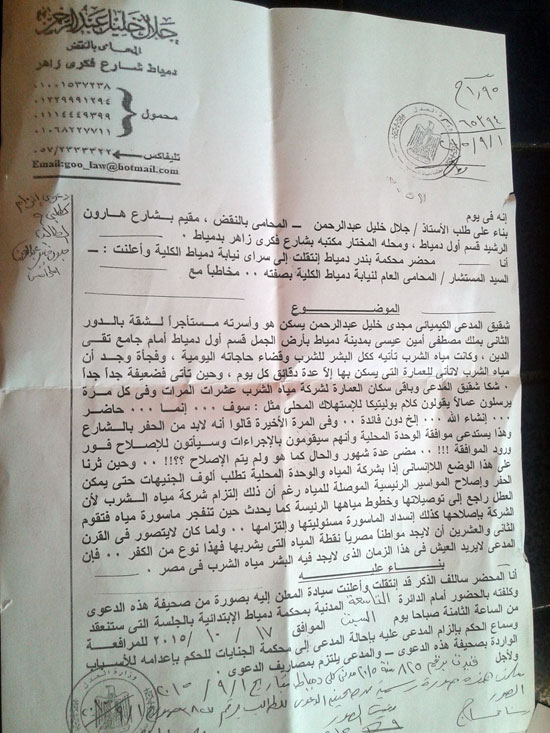 جلال خليل عبدالرحمن
المحامى بالنقض
دمياط شارع فكرى زاهر
٠١٠٠١٥٣٧٢٣٨
٠١٢٢٩٩٩١٢٩٤
٠١١١٤٤٤٩٣٩٩
٠١٠٦٨٢٢٧٧١١
محمول
تليفاكس ٠٥٧/٢٣٣٣٣٢٢
Email:goo_law@hotmail.com
إنه فى يوم
بناء على طلب الأستاذ / جلال خليل عبدالرحمن ــ المحامى بالنقض ، مقيم بشارع هارون
الرشيد قسم أول دمياط ، ومحله المختار مكتبه بشارع فكرى زاهر بدمياط .
أنا محضر محكمة بندر دمياط إنتقلت إلى سراى نيابة دمياط الكلية وأعلنت : ــ
السيد المستشار / المحامى العام لنيابة دمياط الكلية بصفته ٠٠ مخاطباً مع
الموضوع
شقيق المدعى الكيميائى مجدى خليل عبدالرحمن يسكن هو وأسرته مستأجراً لشقة بالدور
الثانى بملك مصطفى أمين عيسى بمدينة دمياط بأرض الجمل قسم أول دمياط أمام جامع تقى
الدين ، وكانت مياه الشرب تأتيه ككل البشر للشرب وقضاء حاجاته اليومية ، وفجأة وجد أن
مياه الشرب لاتأتى للعمارة التى يسكن بها إلا عدة دقائق كل يوم ، وحين تأتى فضعيفة جداً جداً
. شكا شقيق المدعى وباقى سكان العمارة لشركة مياه الشرب عشرات المرات وفى كل مرة
يرسلون عمالاً يقولون كلام بوليتيكا للإستهلاك المحلى مثل : سوف ٠٠٠ إنما ٠٠٠ حاضر
٠٠٠ إنشاء الله ٠٠٠ إلخ دون فائدة ٠٠ وفى المرة الأخيرة قالوا أنه لابد من الحفر بالشارع
وهذا يستدعى موافقة الوحدة المحلية وأنهم سيقومون بالإجراءات وسيأتون للإصلاح فور
ورود الموافقة !!! ٠٠ مضى عدة شهور والحال كما هو ولم يتم الإصلاح ؟؟!! ٠٠ وحين ثرنا
على هذا الوضع اللاإنسانى إذا بشركة المياه والوحدة المحلية تطلب ألوف الجنيهات حتى يمكن
الحفر وإصلاح المواسير الرئيسية الموصلة للمياه رغم أن ذلك إلتزام شركة مياه الشرب لأن
العطل راجع إلى توصيلاتها وخطوط مياهها الرئيسة كما يحدث حين تنفجر ماسورة مياه فتقوم
الشركة بإصلاحها كذلك إنسداد الماسورة مسئوليتها وإلتزامها ٠٠ ولما كان لايتصور فى القرن
الثانى والعشرين أن لايجد مواطناً مصرياً نقطة المياه التى يشربها فهذا نوع من الكفر ٠٠ فإن
المدعى لايريد العيش فى هذا الزمان الذى لايجد فيه البشر مياه الشرب فى مصر .
بناء عليه
أنا المحضر سالف الذكر قد إنتقلت وأعلنت سيادة المعلن إليه بصورة من صحيفة هذه الدعوى
وكلفته بالحضور أمام الدائرة التاسعة المدنية بمحكمة دمياط الإبتدائية بالجلسة التى ستنعقد
من الساعة الثامنة صباحا يوم السبت الموافق ١٧ / ١٠ / ٢٠١٥ للمرافعة
وسماع الحكم بإلزام المدعى عليه بإحالة المدعى إلى محكمة الجنايات للحكم بإعدامه للأسباب
الواردة بصحيفة هذه الدعوى ــ والمدعى يلتزم بمصاريف الدعوى .
ولأجل